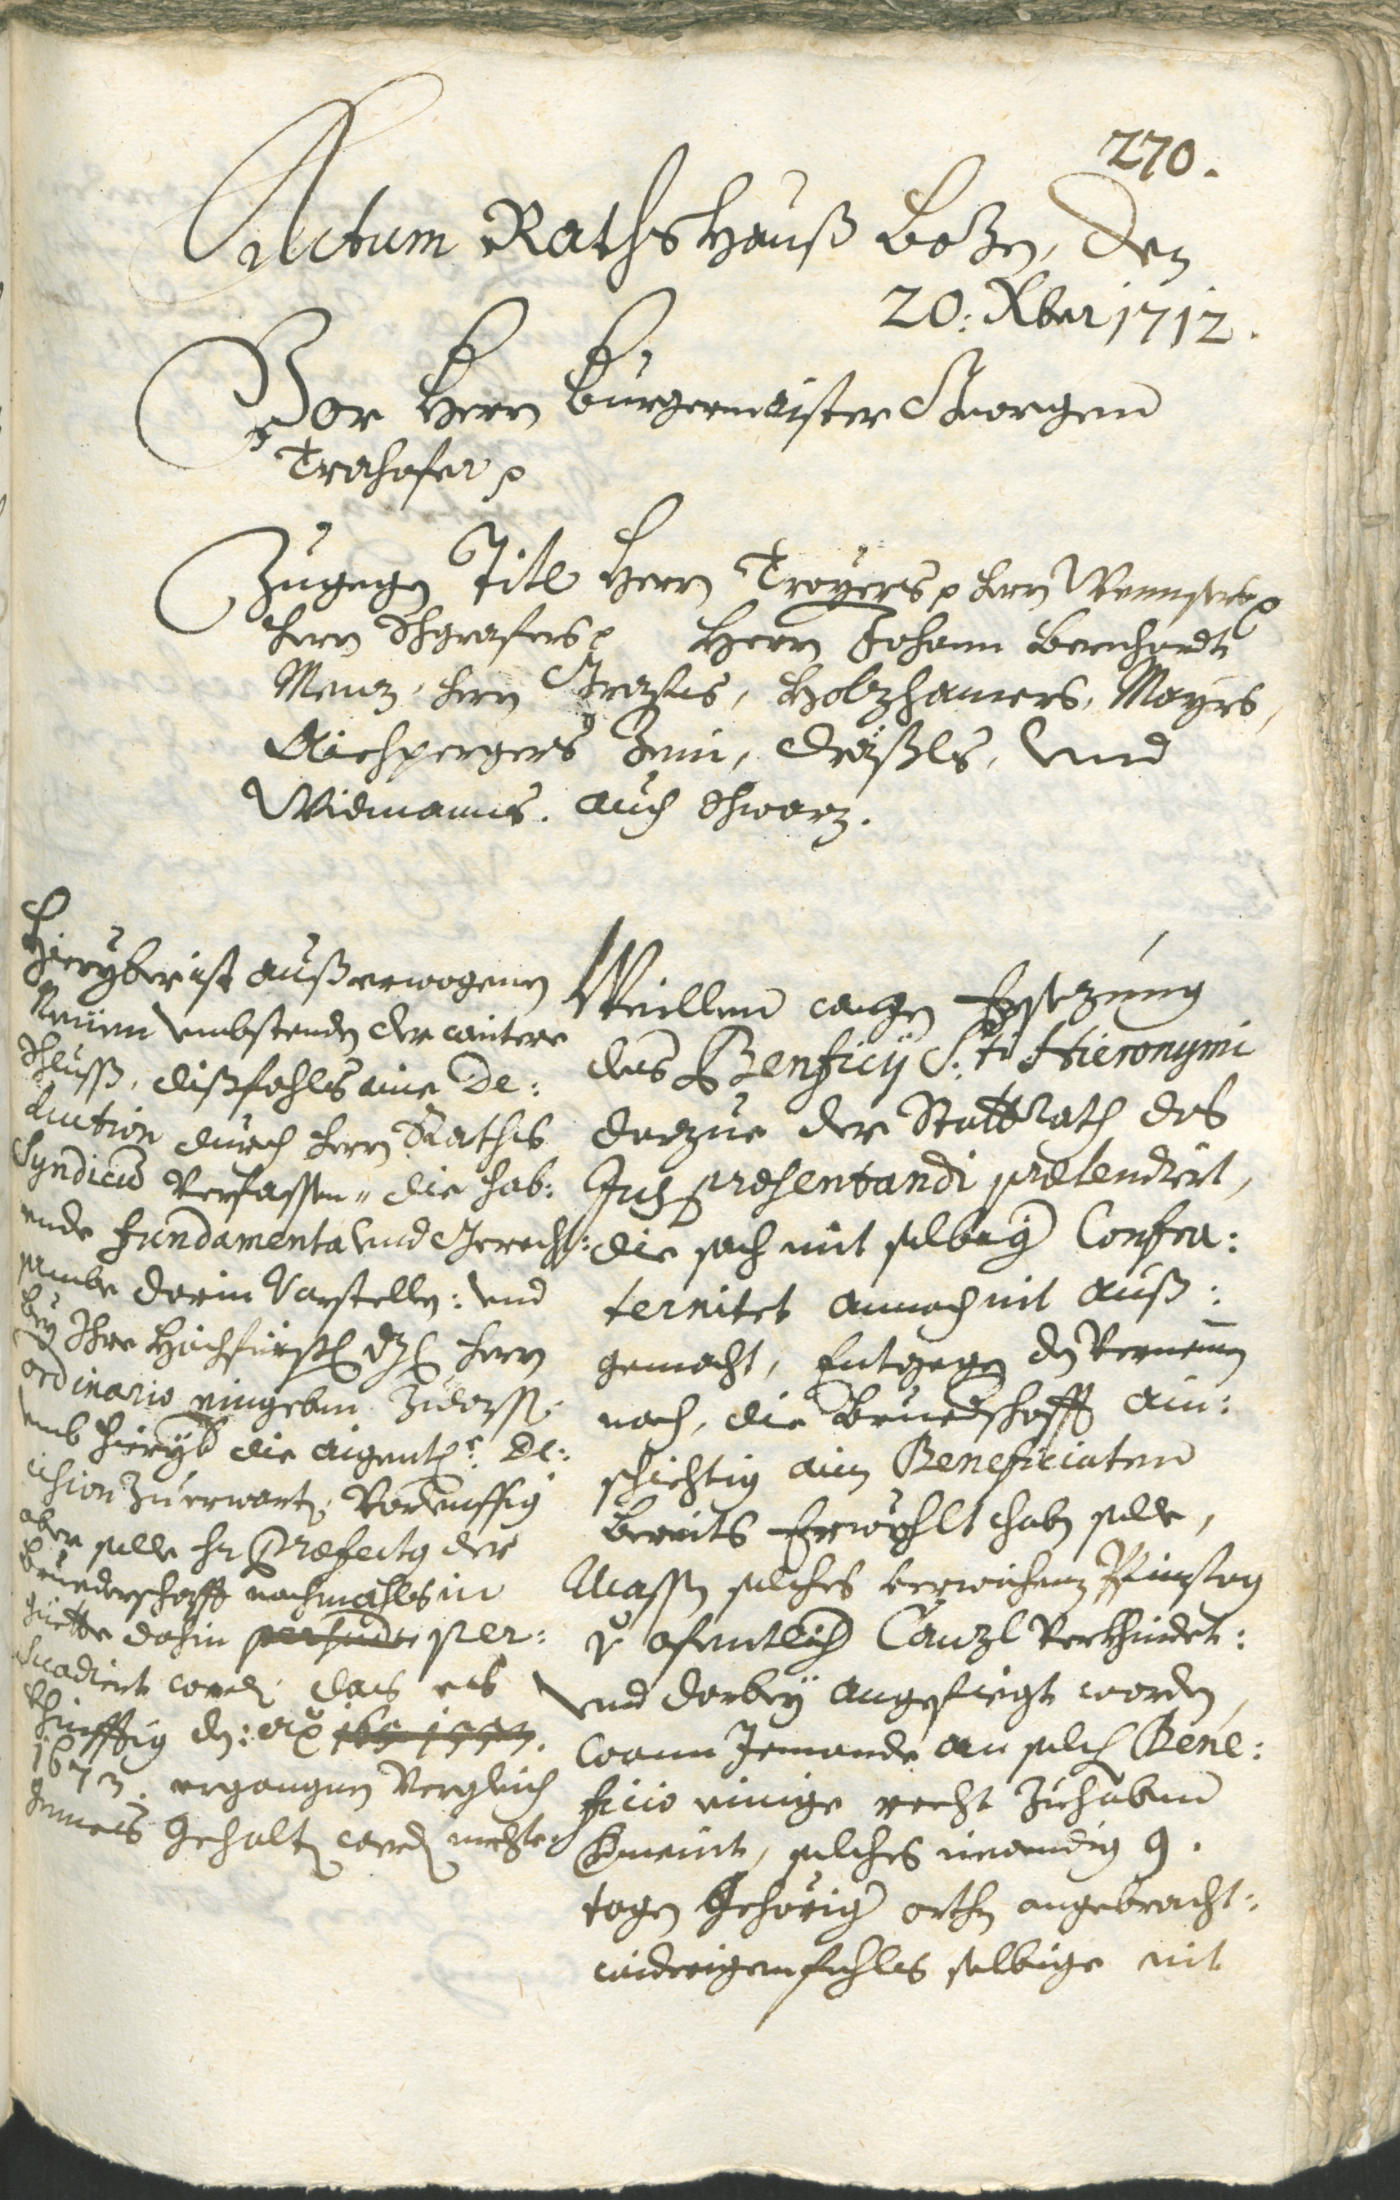 270.
Actum Rathshauß Bozen, den
20: Xber 1712.
Vor Herrn Burgermaister Georgen
Trohofer p
Zugegen Titl Herrn Troyers p Herrn Wenser p
Herrn Schgrafers p Herrn Johann Bernhardt
Menz, Herrn Grafens, Holzhamers, Mayrs,
Aichpergers Jenin, Dräxls, und
Widmanns. auch Schwarz.
Hieryber ist auß erwogenen
Neuen umbstenden der weitere
Schluss, dißfahls eine De:
duction durch Herrn Rathes
Syndicum Verfassen die hab:
ende fundamenta und Gerecht:
sambe darin Vorstellen: und
bey Ihro Hochfürstl Herrn
ordinario eingeben Zulassen
umb hieryber die aigentl: De:
cision Zuerwarten, Vorleuffig
aber solle Hr Præfectg der
Bruederschafft nochmahls in
Güette dahin persuadi per:
suadiert werden dass es
khinfftig der: aō 169 1773.
1673. ergangnen Verglich
gemeß Gehalten werden mechte.
Weillen wegen Ersezung
des Benficij S:ti Hieronymi
darzue der Stattrath das
Jus præsentandi prætendirt,
die sach mit selbiger Confra:
ternitet annoch nit auß:
gemacht, Entgegen dem Vernemen
nach, die Bruederschafft ain:
schichtig ain Beneficiaten
bereits Erwöhlt haben solle,
Massen solches verwichenen Pfinstag
v ofentlicher Canzl Verkhindet:
und darbey angefiegt worden,
wann Jemande an solch Bene:
ficio einige recht Zuhaben
vermeint, solches inwendig 9.
tagen Gehöriger orthen angebracht:
widrigenfahls selbige nit